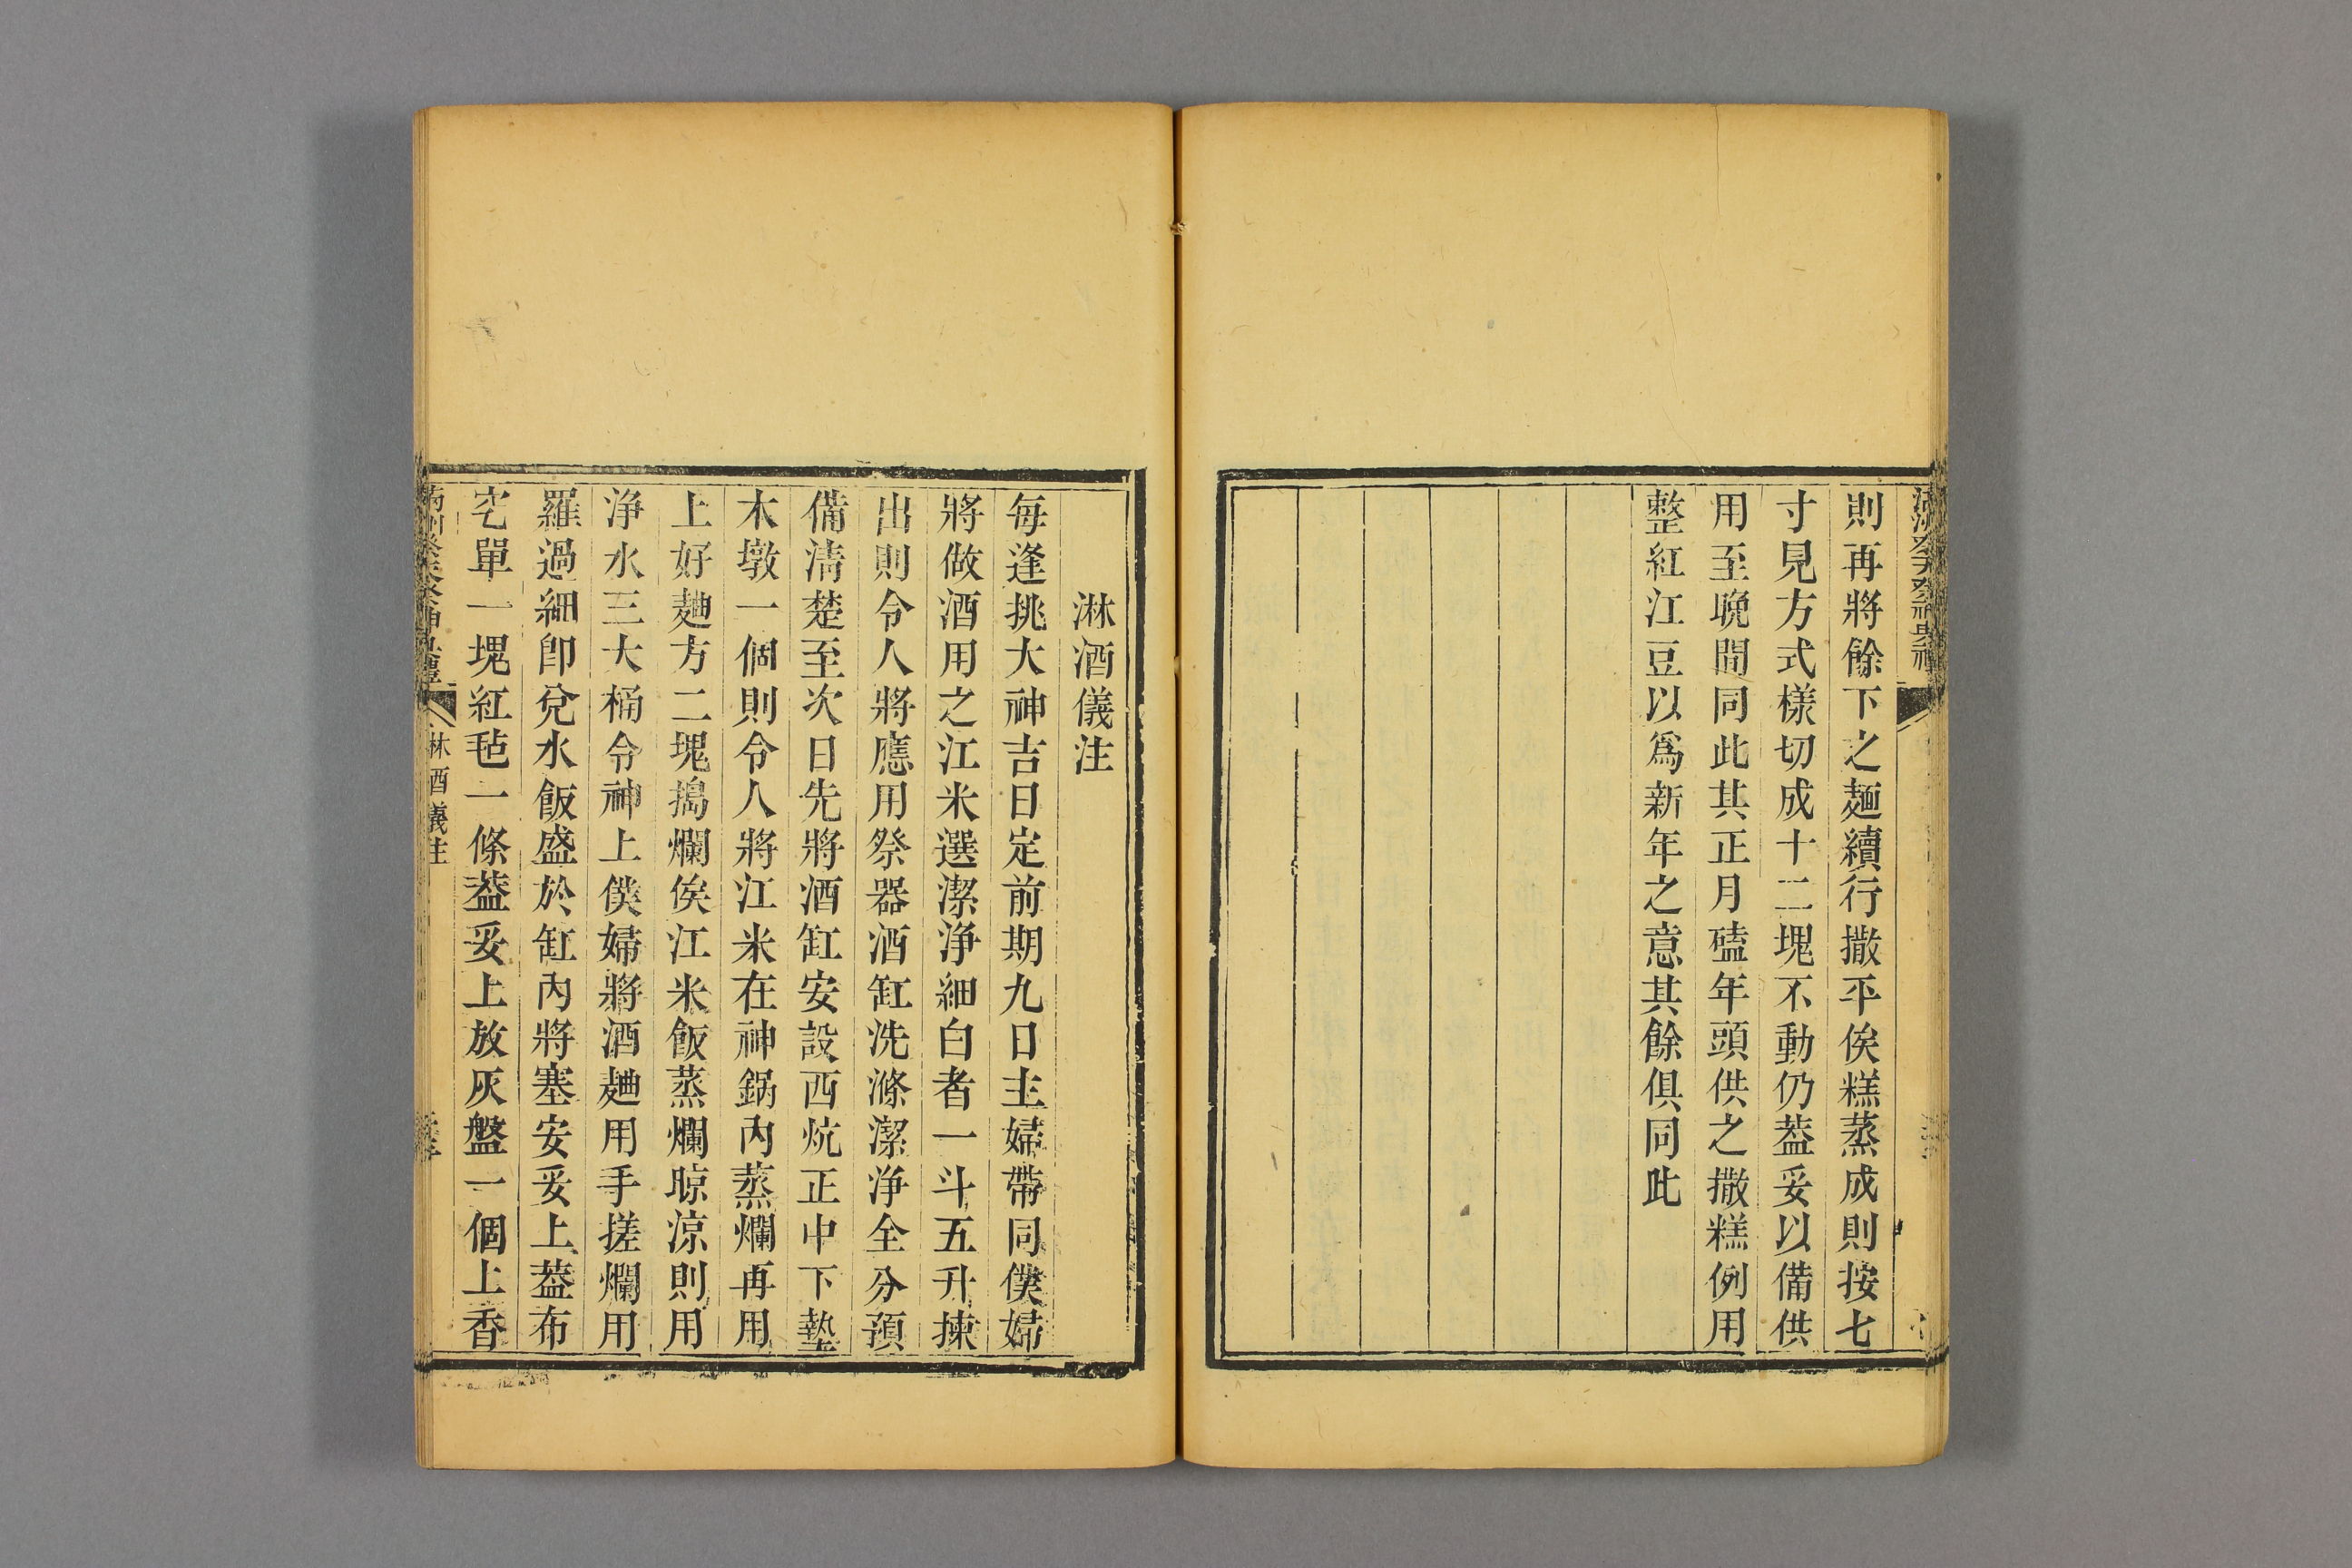 則再將餘下之麵續行撒平俟糕蒸成則按七
寸見方式樣切成十二塊不動仍葢妥以備供
用至晚間同此其正月磕年頭供之撒糕例用
整紅江豆以爲新年之意其餘俱同此
淋酒儀注
每逢挑大神吉日定前期九日主婦帶同僕婦
將做酒用之江米選潔淨細白者一斗五升揀
出則令人將應用祭器酒缸洗滌潔淨全分預
備淸楚至次日先將酒缸安設西炕正中下墊
木墩一個則令人將江米在神鍋內蒸爛再用
上好麯方二塊搗爛俟江米飯蒸爛晾涼則用
淨水三大桶令神上僕婦將酒麯用手搓爛用
羅過細卽兌水飯盛於缸內將塞安妥上葢布
空單一塊紅毡一條葢妥上放灰盤一個上香
淋酒儀注